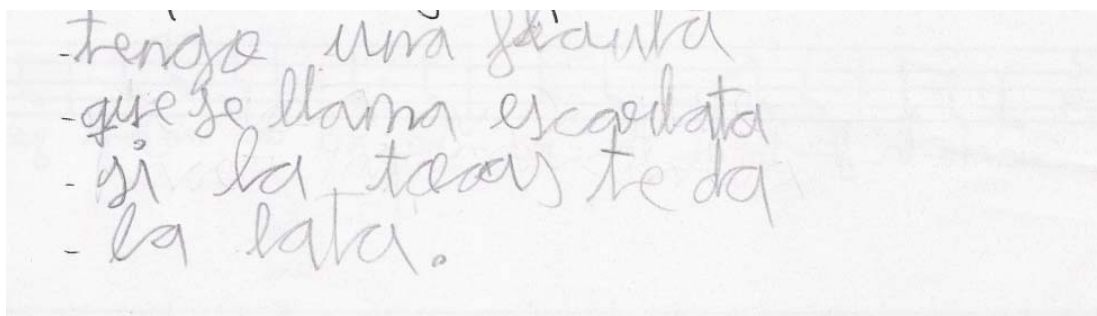 - tengo una flauta
- que se llama escarlata
- si la tocas te da
- la lata.